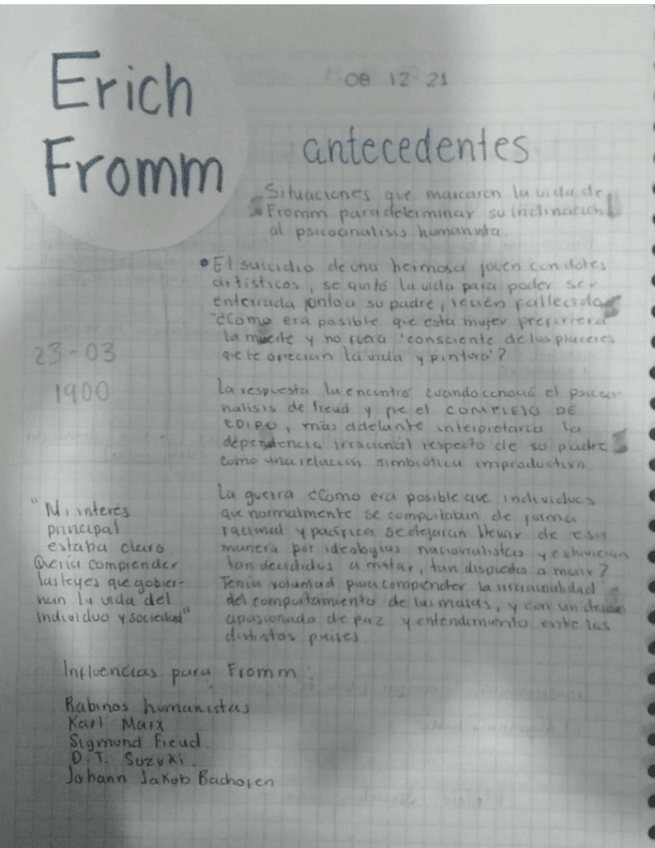 Erich
Fromm
08 12 21
antecedentes
Situaciones que marcaron la vida de
Fromm para determinar su inclinación
al psicoanalisis humanista
• El suicidio de una hermosa joven con dotes
artísticos, se quitó la vida para poder ser
enterrada junto a su padre, recién fallecido
"¿Cómo era posible que esta mujer prefiriera
la muerte y no fuera 'consciente de los placeres
que le ofrecían la vida y pintura'?
23-03
1900
La respuesta la encontró cuando conoció el psicoa-
nalisis de freud y fue el COMPLEJO DE
EDIPO, más adelante interpretaría la
dependencia irracional respecto de su padre
como una relación simbiótica improductiva
La guerra ¿Como era posible que individuos
que normalmente se comportaban de forma
racional y pacífica se dejaran llevar de esa
manera por ideologías nacionalistas y estuvieran
tan decididos a matar, tan dispuestos a morir?
Tenía voluntad para comprender la irracionalidad
del comportamiento de las masas, y con un deseo
apasionado de paz y entendimiento entre los
distintos países.
"Mi interés
principal
estaba claro
Quería comprender
las leyes que gobier-
nan la vida del
individuo y sociedad"
Influencias para Fromm:
Rabinos humanistas
Karl Marx
Sigmund Freud
D.T. Suzuki
Johann Jakob Bachofen